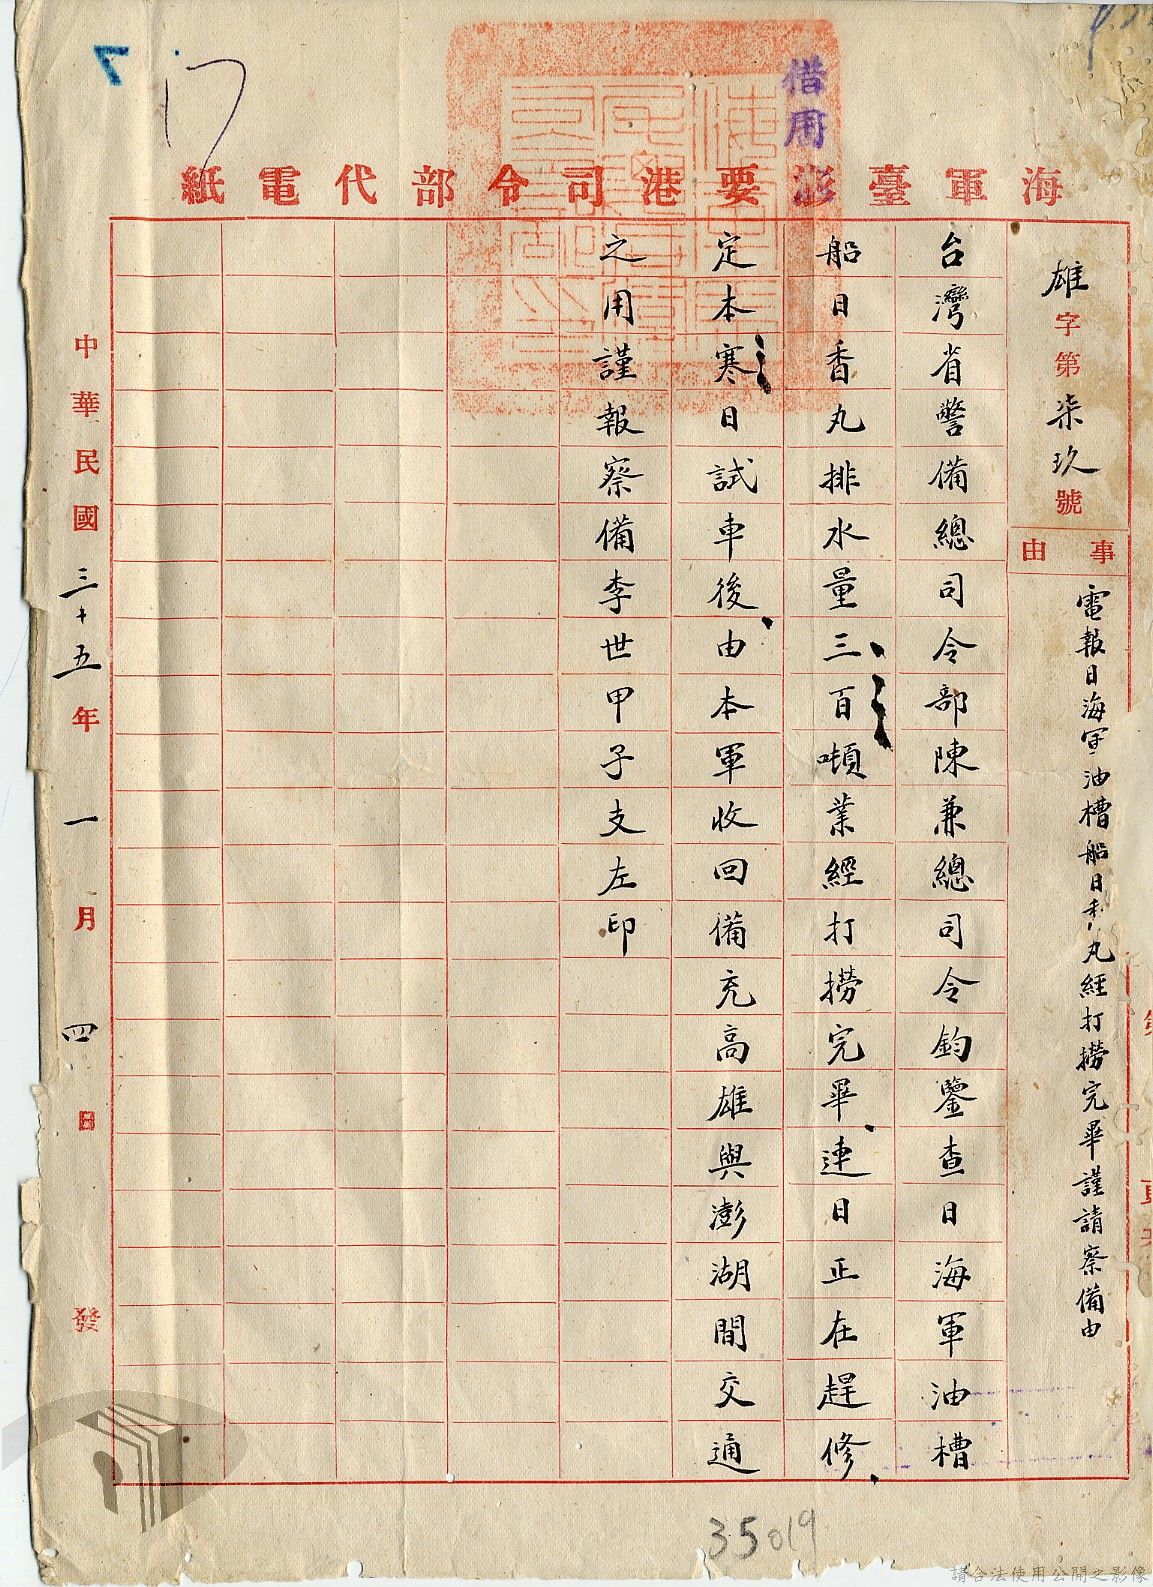 借用
海軍臺澎要港司令部代電紙
雄字第柒玖號
事由
電報日海軍油槽船日香丸經打撈完畢謹請察備由
台灣省警備總司令部陳兼總司令鈞鑒查日海軍油槽
船日香丸排水量三百噸業經打撈完畢連日正在趕修
定本寒日試車後由本軍收回備充高雄與澎湖間交通
之用謹報察備李世甲子支左印
中華民國三十五年一月四日發
35019
請合法使用公開之影像